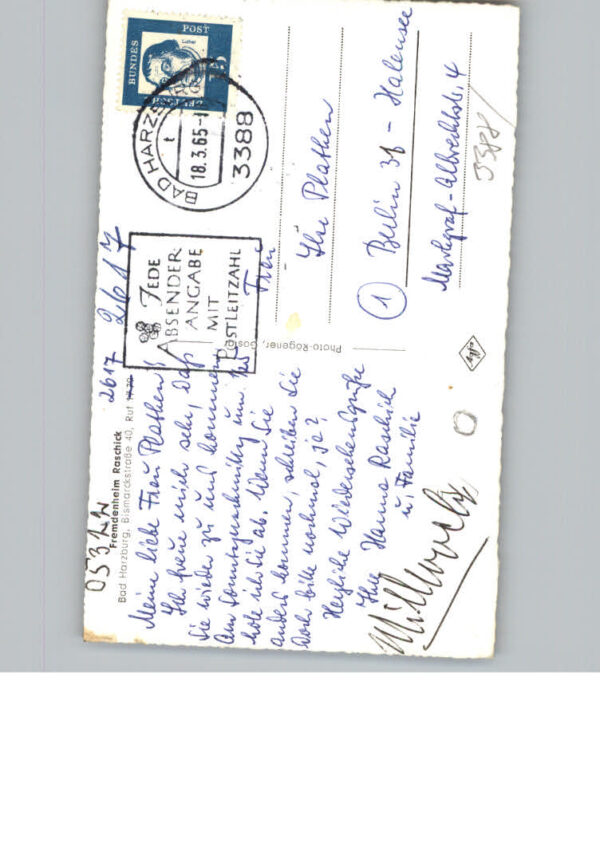 05322
2617
2617
Fremdenheim Raschick
Bad Harzburg, Bismarckstraße 40, Ruf
Meine liebe Frau Plathen!
Ich freue mich sehr, daß
Sie wieder zu uns kommen.
Am Sonntagnachmittag um
hole ich Sie ab. Wenn Sie
anders kommen, schreiben Sie
doch bitte nochmal, ja?
Herzliche Wiedersehensgrüße
Ihre Hanna Raschick
u. Familie
Photo-Rögener, Goslar
Agfa
DEUTSCHE
BUNDES
POST
Luther
15
BAD HARZBURG
t
18.3.65-1
3388
JEDE
ABSENDER-
ANGABE
MIT
POSTLEITZAHL
Frau
Ilse Plathen
1 Berlin 31 - Halensee
Markgraf-Albrechtstr. 4
3388